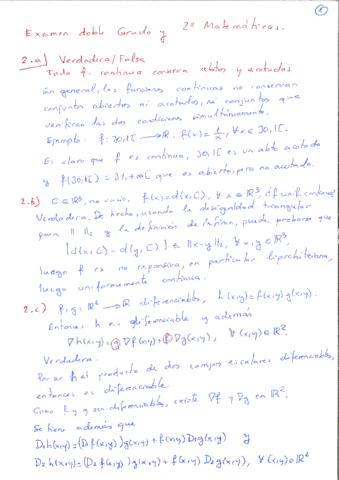 Examen doble Grado y 2º Matemáticas.
2.a) Verdadera/Falsa
Toda f. continua conserva abtos y acotados
En general, las funciones continuas no conservan
conjuntos abiertos ni acotados, ni conjuntos que
verifican las dos condiciones simultáneamente.
Ejemplo: f: ]0,1[ → ℝ, f(x) = 1/x, ∀x ∈ ]0,1[.
Es claro que f es continua, ]0,1[ es un abto acotado
y f(]0,1[) = ]1,+∞[ que es abierto, pero no acotado.
2.b) C ⊂ ℝ³, no vacío, f(x) = d(x,C), ∀x ∈ ℝ³, ¿f unif. continua?
Verdadera. De hecho, usando la desigualdad triangular
para ‖ ‖₂ y la definición de ínfimo, puede probarse que
|d(x,C) - d(y,C)| ≤ ‖x-y‖₂, ∀x,y ∈ ℝ³,
luego f es no expansiva, en particular lipschitziana,
luego uniformemente continua.
2.c) f,g: ℝ² → ℝ diferenciables, h(x,y) = f(x,y)g(x,y).
Entonces h es diferenciable y además
∇h(x,y) = g ∇f(x,y) + f ∇g(x,y), ∀(x,y) ∈ ℝ².
Verdadera.
Por ser h el producto de dos campos escalares diferenciables,
entonces es diferenciable
Como f y g son diferenciables, existe ∇f y ∇g en ℝ².
Se tiene además que
D₁h(x,y) = (D₁f(x,y))g(x,y) + f(x,y)D₁g(x,y) y
D₂h(x,y) = (D₂f(x,y))g(x,y) + f(x,y)D₂g(x,y), ∀(x,y) ∈ ℝ²